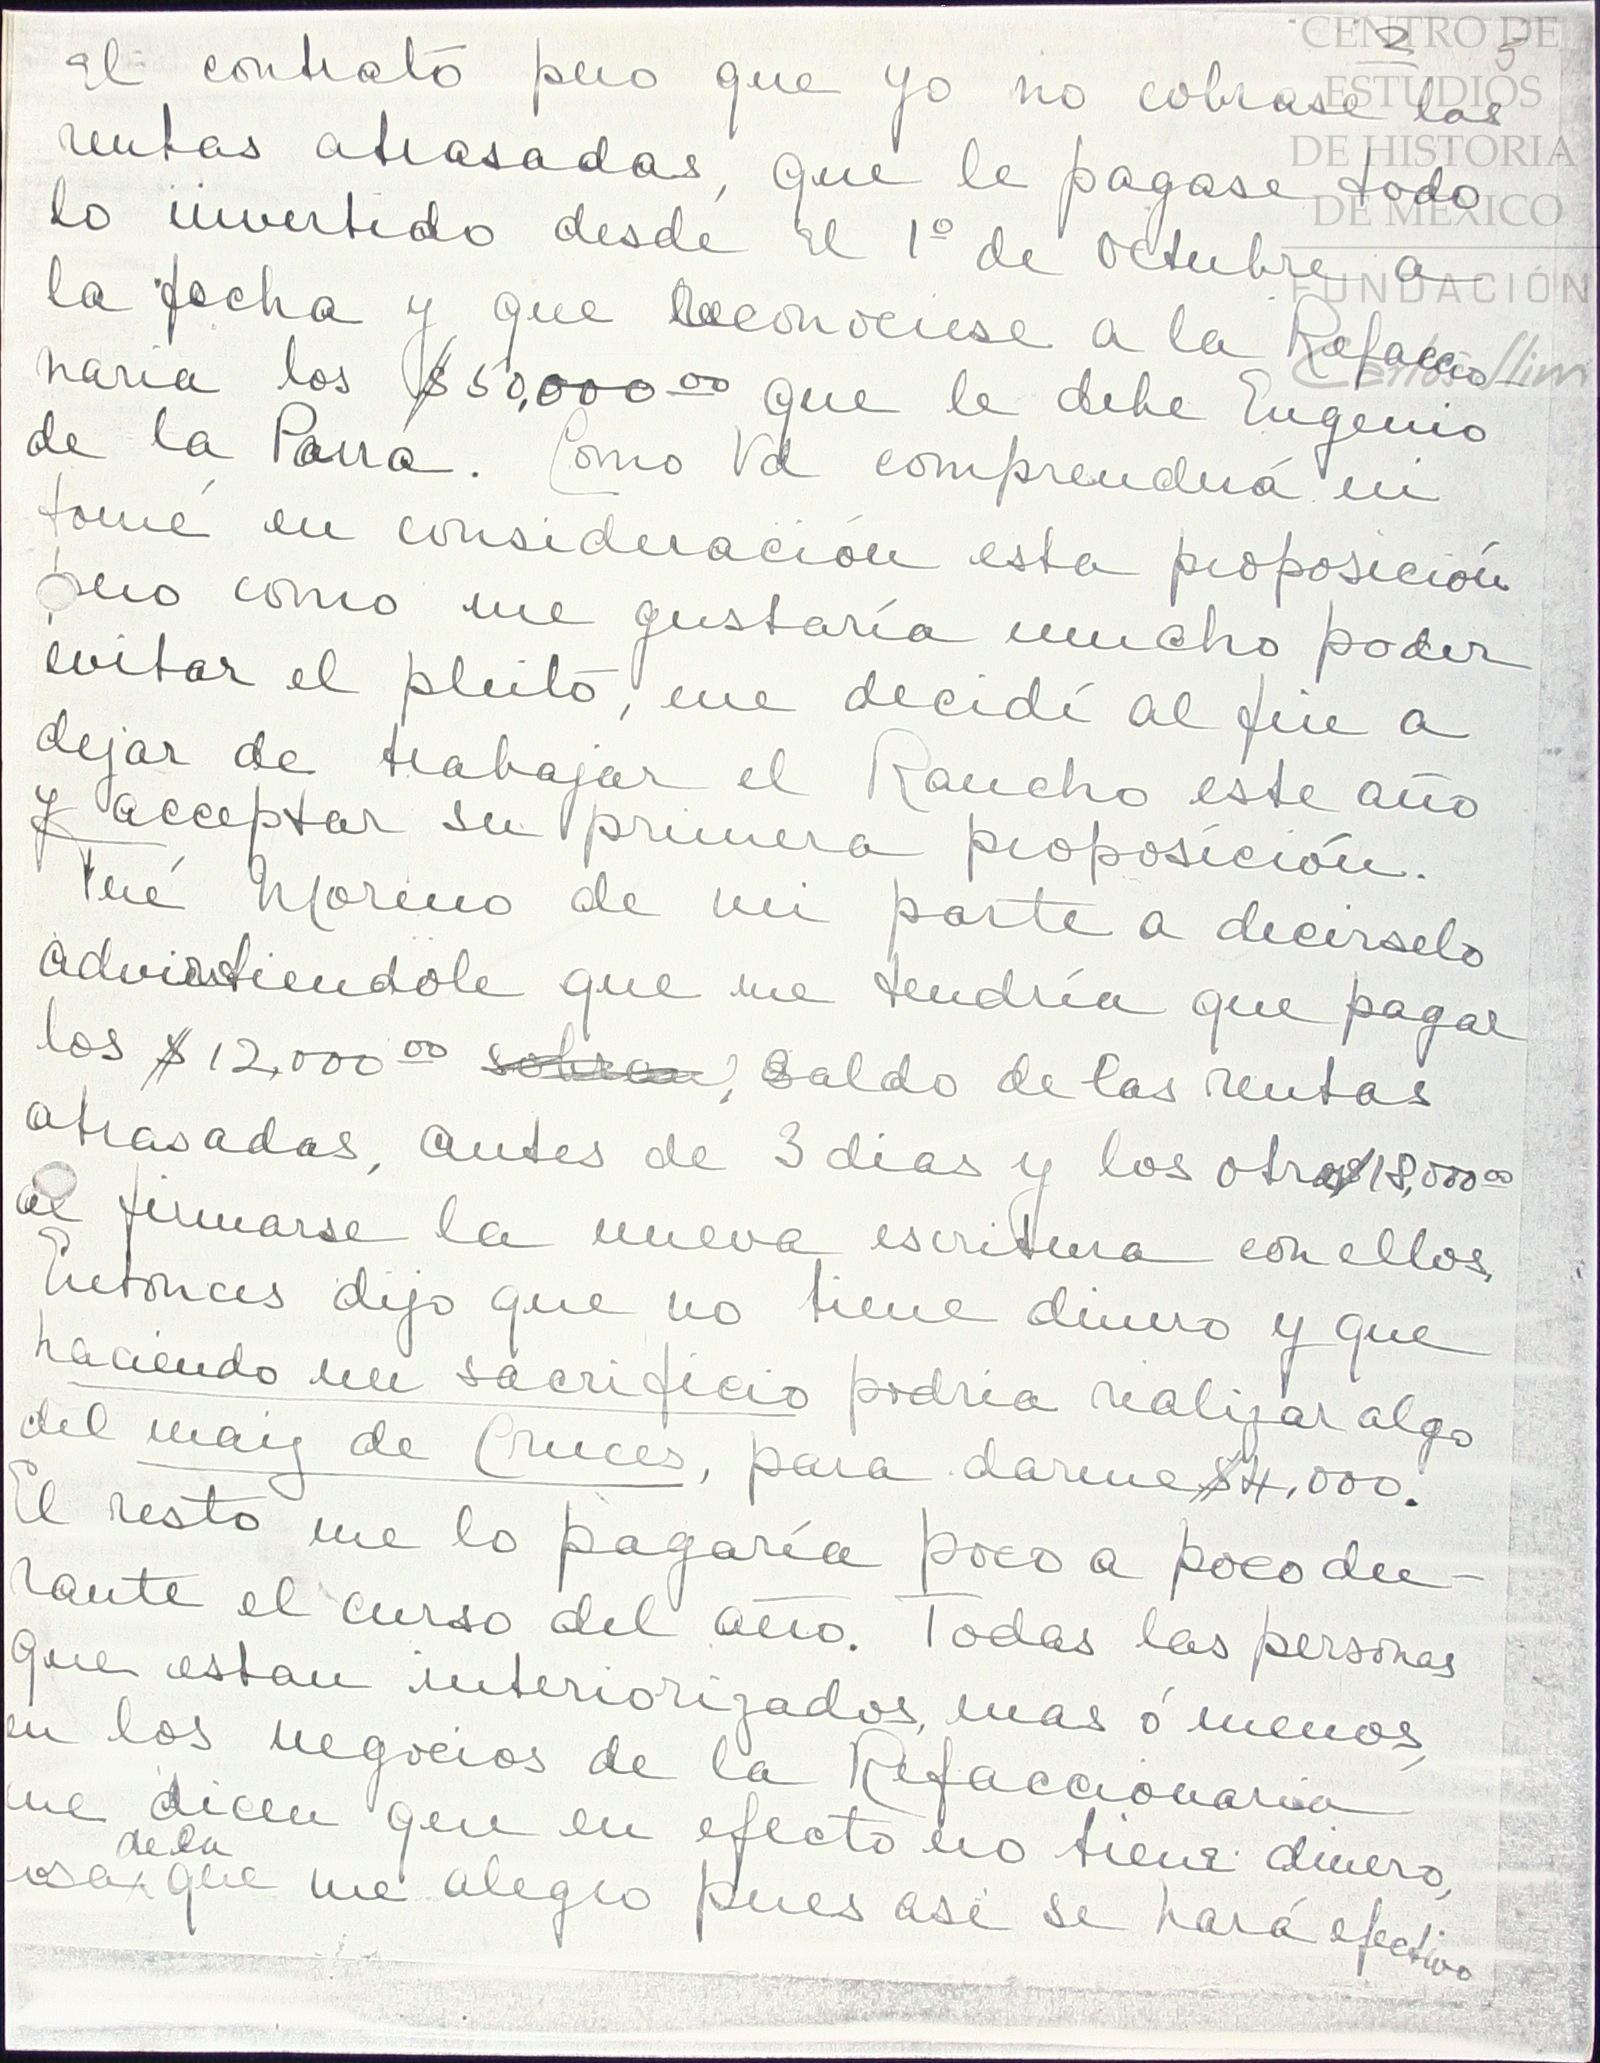 2 5
CENTRO DE
ESTUDIOS
DE HISTORIA
DE MÉXICO
FUNDACIÓN
Carlos Slim
el contrato pero que yo no cobrase las
rentas atrasadas, que le pagase todo
lo invertido desde el 1º de octubre a
la fecha y que reconociese a la Refaccio-
naria los $50,000 00 que le debe Eugenio
de la Parra. Como Vd comprenderá ni
tomé en consideración esta proposición
pero como me gustaría mucho poder
evitar el pleito, me decidí al fin a
dejar de trabajar el Rancho este año
y acceptar su primera proposición.
Fué Moreno de mi parte a decirselo
advirtiendole que me tendría que pagar
los $12,000 00 sobran, saldo de las rentas
atrasadas, antes de 3 dias y los otros $18,000 00
al firmarse la nueva escritura con ellos.
Entonces dijo que no tiene dinero y que
haciendo un sacrificio podria realizar algo
del maiz de Cruces, para darme $4,000.
El resto me lo pagaría poco a poco du-
rante el curso del año. Todas las personas
que estan interiorizados, mas ó menos,
en los negocios de la Refaccionaria
me dicen que en efecto no tiene dinero,
de la
cosa que me alegro pues asi se hará efectivo